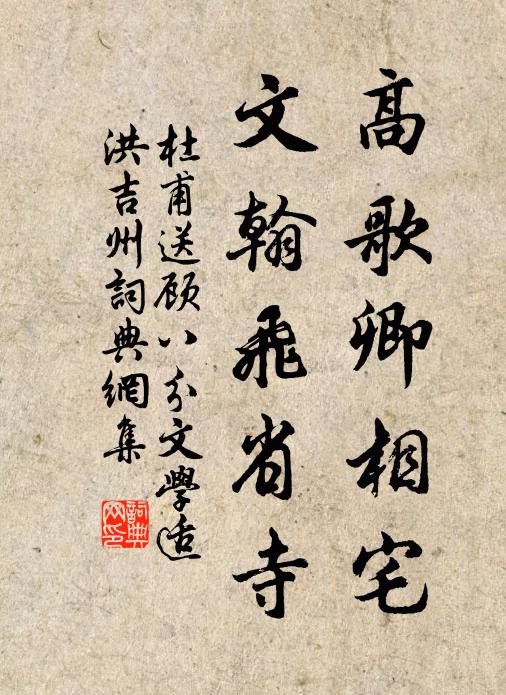 高歌卿相宅
文翰飛省寺
杜甫送顾八分文學适
洪吉州詞典網集
詞典網印